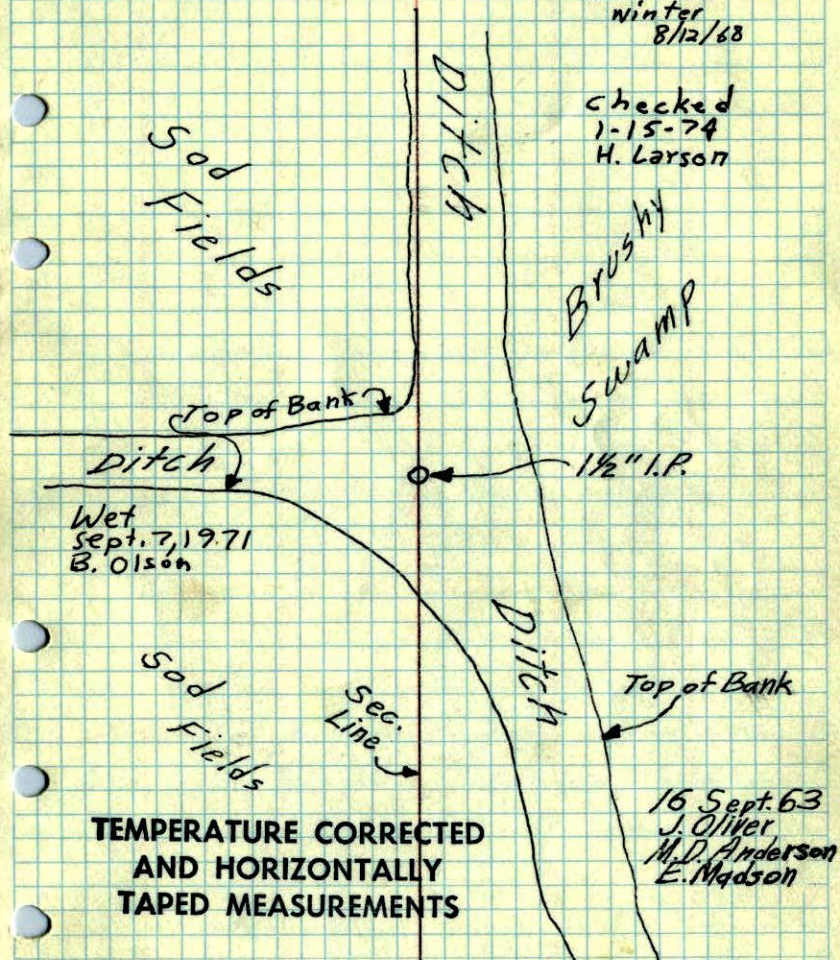 winter
8/12/68
checked
1-15-74
H. Larson
Ditch
Sod
Fields
Brushy
Swamp
Top of Bank
Ditch
1½" I.P.
Wet
Sept. 7, 1971
B. Olson
Ditch
Sod
Fields
Sec.
Line
Top of Bank
16 Sept. 63
J. Oliver
M.D. Anderson
E. Madson
TEMPERATURE CORRECTED
AND HORIZONTALLY
TAPED MEASUREMENTS